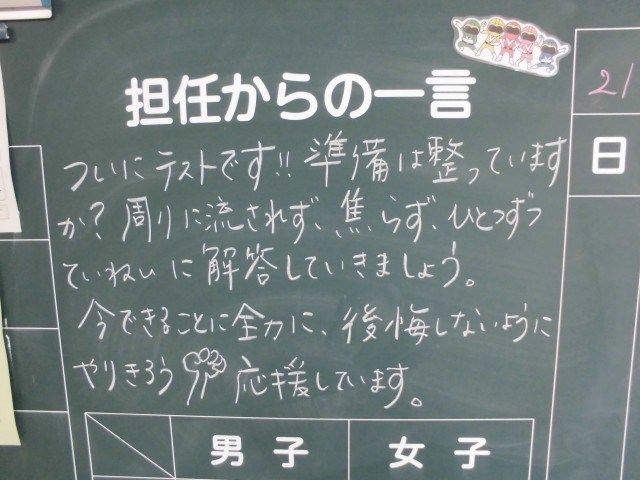 担任からの一言
21
日
ついにテストです!! 準備は整っています
か？周りに流されず、焦らず、ひとつずつ
ていねいに解答していきましょう。
今できることに全力に、後悔しないように
やりきろう 応援しています。
男子
女子